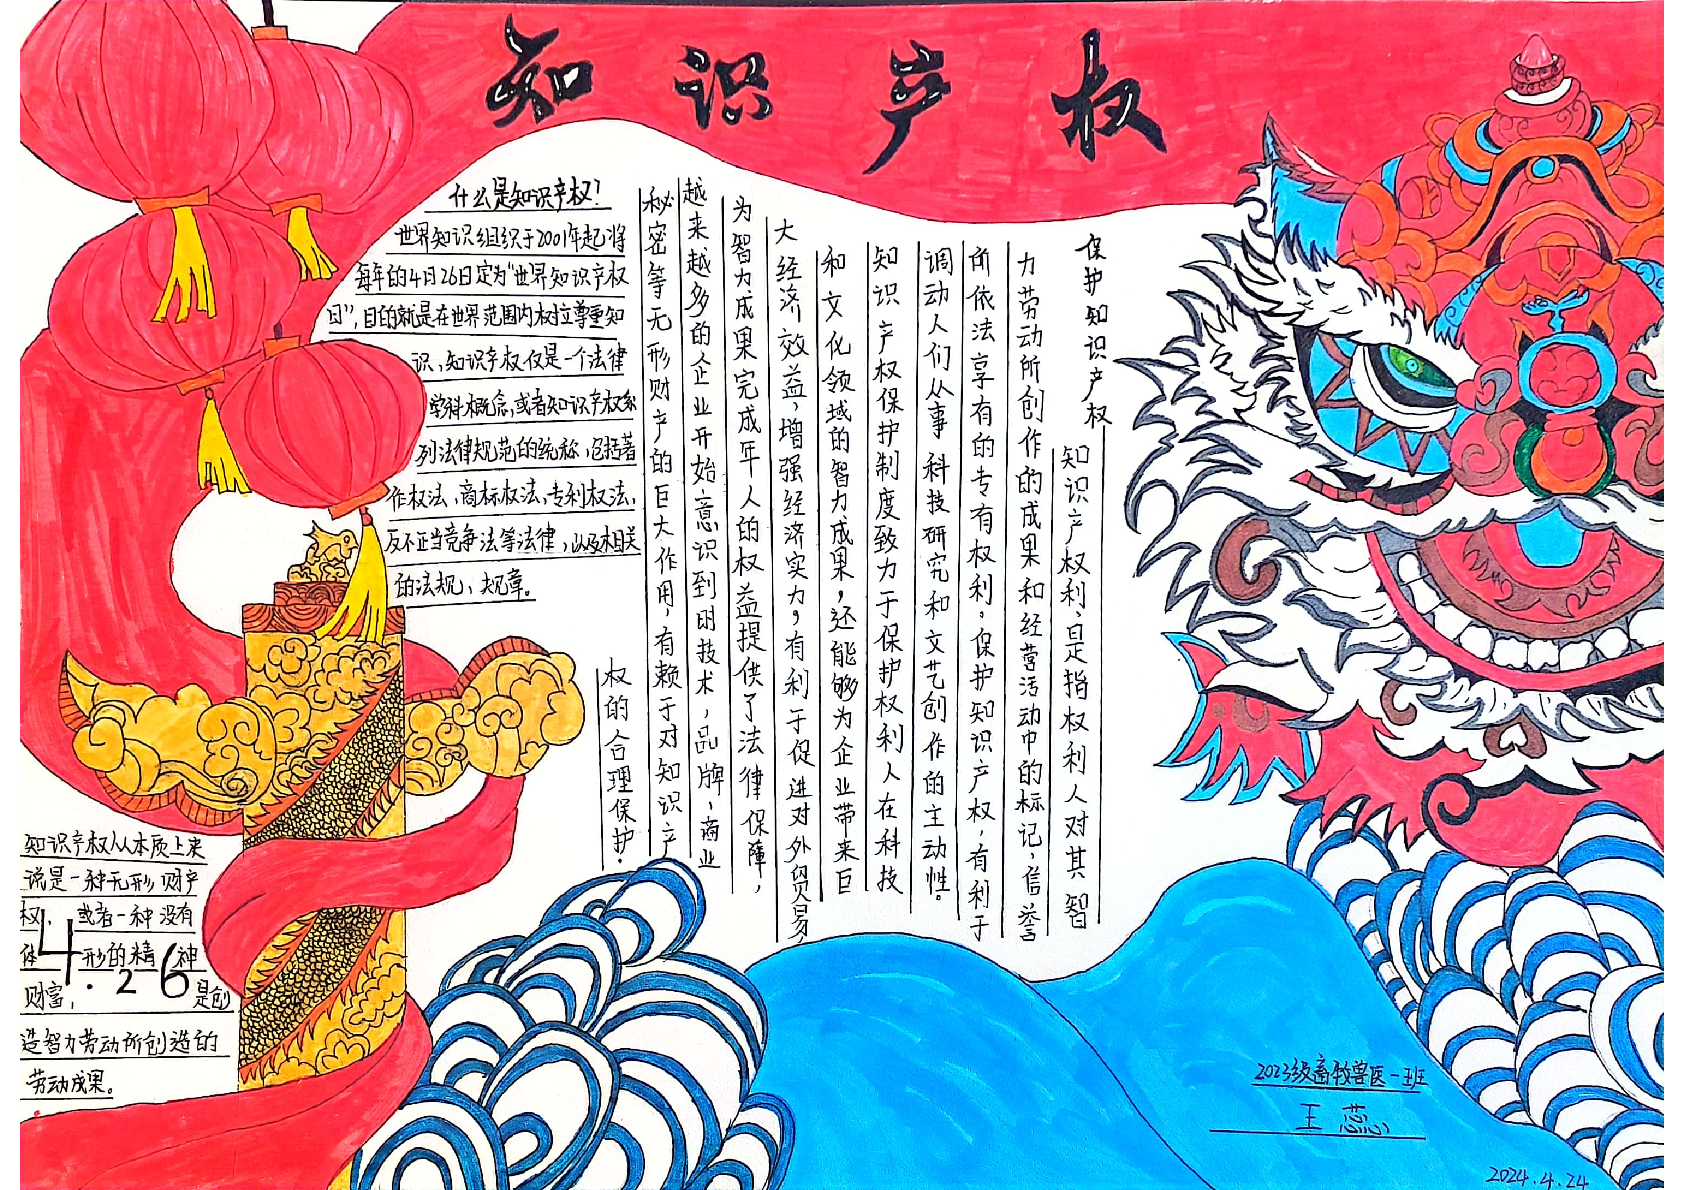 知识产权
什么是知识产权?
世界知识组织于2001年起将
每年的4月26日定为“世界知识产权
日”,目的就是在世界范围内树立尊重知
识,知识产权仅是一个法律
学科概念,或者知识产权系
列法律规范的统称,包括著
作权法、商标权法、专利权法、
反不正当竞争法等法律,以及相关
的法规、规章。
保护知识产权
知识产权利:是指权利人对其智
力劳动所创作的成果和经营活动中的标记,信誉
所依法享有的专有权利。保护知识产权,有利于
调动人们从事科技研究和文艺创作的主动性。
知识产权保护制度致力于保护权利人在科技
和文化领域的智力成果,还能够为企业带来巨
大经济效益,增强经济实力,有利于促进对外贸易,
为智力成果完成年人的权益提供了法律保障,
越来越多的企业开始意识到明技术,品牌、商业
秘密等无形财产的巨大作用,有赖于对知识产
权的合理保护.
知识产权从本质上来
说是一种无形财产
权,或者一种没有
体形的精神
财富,是创
造智力劳动所创造的
劳动成果。
4.26
2023级畜牧兽医一班
王蕊
2024.4.24